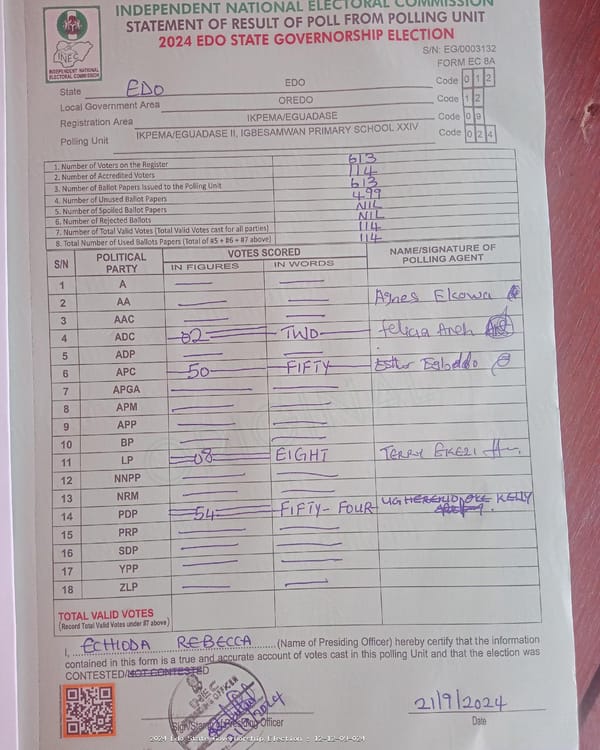 INDEPENDENT NATIONAL ELECTORAL COMMISSION
STATEMENT OF RESULT OF POLL FROM POLLING UNIT
2024 EDO STATE GOVERNORSHIP ELECTION
INEC
INDEPENDENT NATIONAL ELECTORAL COMMISSION
S/N: EG/0003132
FORM EC 8A
State EDO EDO Code 0 1 2
Local Government Area OREDO Code 1 2
Registration Area IKPEMA/EGUADASE Code 0 9
Polling Unit IKPEMA/EGUADASE II, IGBESAMWAN PRIMARY SCHOOL XXIV Code 0 2 4
1. Number of Voters on the Register 613
2. Number of Accredited Voters 114
3. Number of Ballot Papers Issued to the Polling Unit 613
4. Number of Unused Ballot Papers 499
5. Number of Spoiled Ballot Papers NIL
6. Number of Rejected Ballots NIL
7. Number of Total Valid Votes (Total Valid Votes cast for all parties) 114
8. Total Number of Used Ballots Papers (Total of #5 + #6 + #7 above) 114
S/N POLITICAL PARTY VOTES SCORED NAME/SIGNATURE OF POLLING AGENT
IN FIGURES IN WORDS
1 A
2 AA Agnes Ekowa
3 AAC
4 ADC 02 TWO Felicia
5 ADP
6 APC 50 FIFTY Esther
7 APGA
8 APM
9 APP
10 BP
11 LP 08 EIGHT TERRY
12 NNPP
13 NRM
14 PDP 54 FIFTY-FOUR KELLY
15 PRP
16 SDP
17 YPP
18 ZLP
TOTAL VALID VOTES
(Record Total Valid Votes under #7 above)
I, ECHIODA REBECCA (Name of Presiding Officer) hereby certify that the information
contained in this form is a true and accurate account of votes cast in this polling Unit and that the election was
CONTESTED/NOT CONTESTED
21/9/2024
Sign/Stamp of Presiding Officer Date
2024 Edo State Governorship Election - 12-12-09-024